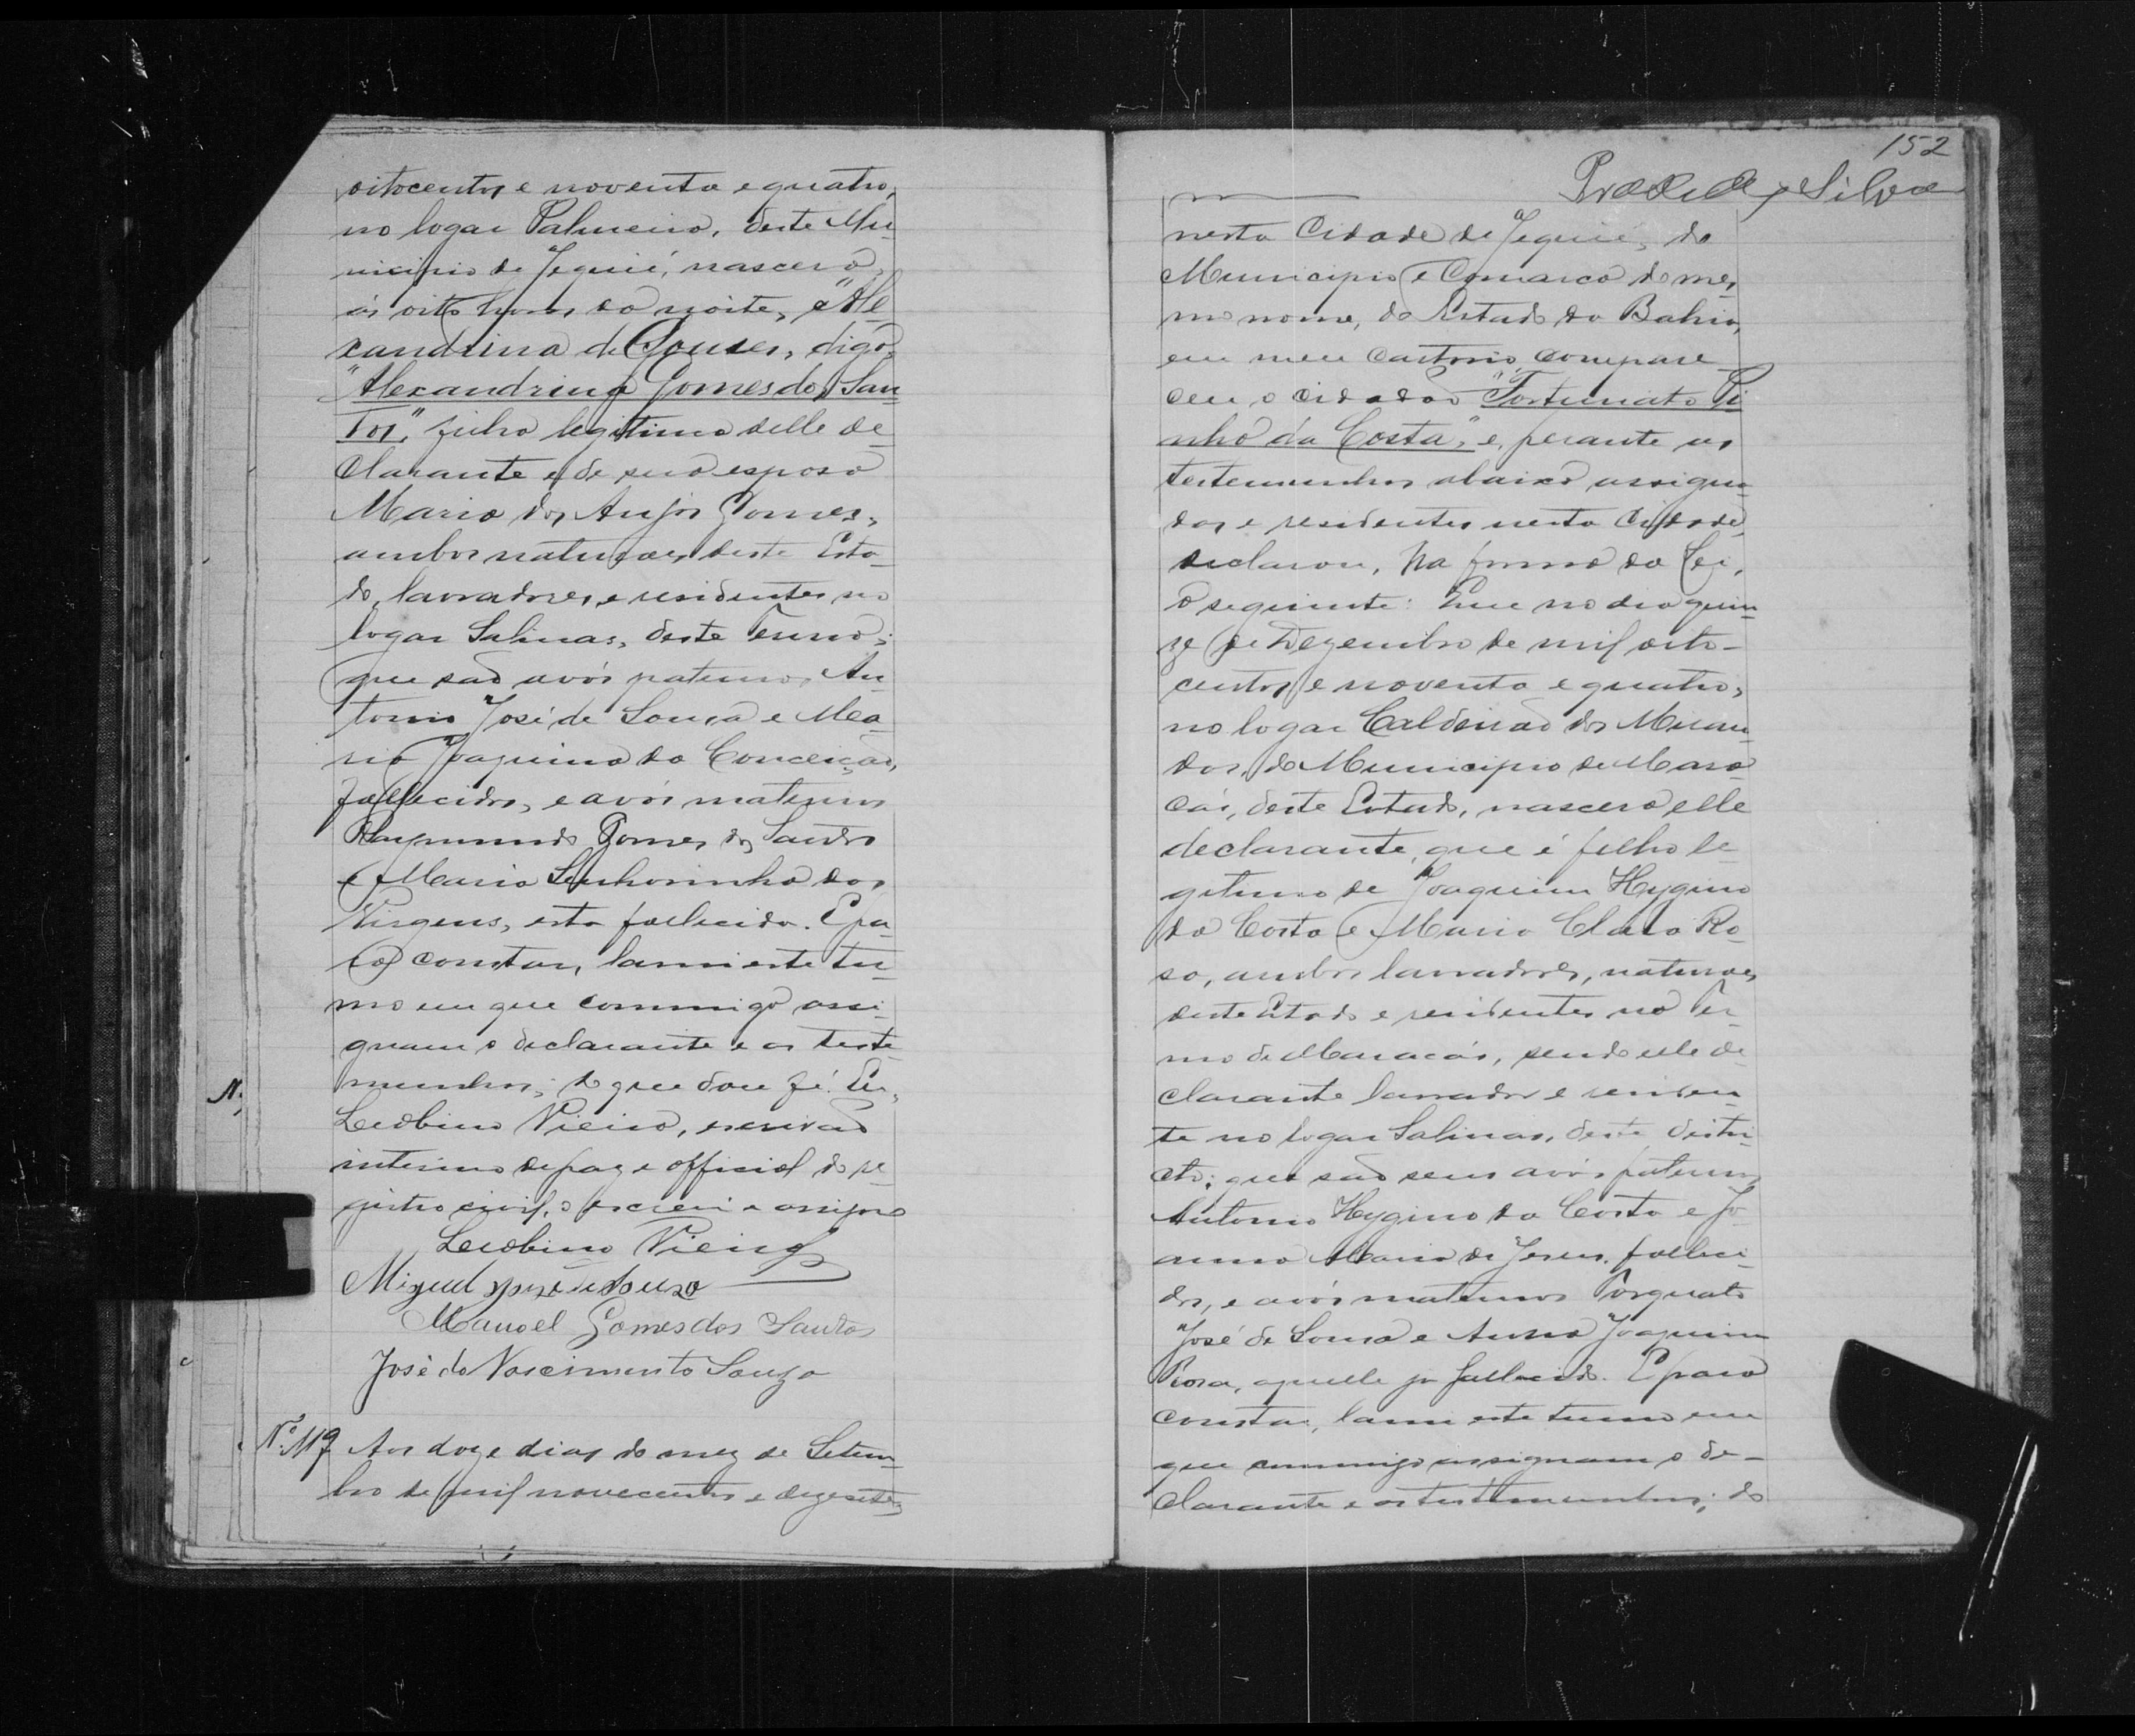 oitocentos e noventa e quatro,
no logar Palmeira, deste Mu-
nicipio de Jequié, nascera
ás oito horas da noite, "Ale-
xandrina de Souza, digo,
"Alexandrina Gomes dos San-
tos", filha legitima delle de-
clarante e de sua esposa
Maria dos Anjos Gomes,
ambos naturaes deste Esta-
do, lavradores, e residentes no
logar Salinas, deste Termo;
que são avós paternos An-
tonio José de Souza e Ma-
ria Joaquina da Conceição,
fallecidos, e avós maternos
Raymundo Gomes dos Santos
e Maria Senhorinha das
Virgens, esta fallecida. E pa-
ra constar, lavrei este ter-
mo em que commigo assi-
gnam o declarante e as teste-
munhas; do que dou fé. Eu,
N.
Leobino Vieira, escrivão
interino de paz e official do re-
gistro civil, o escrevi e assigno
Leobino Vieira
Miguel José de Souza
Manoel Gomes dos Santos
José do Nascimento Souza
Nº 119 Aos doze dias do mez de Setem-
bro de mil novecentos e dezesete,
152
Silva
nesta Cidade de Jequié, do
Municipio e Comarca do mes-
mo nome, do Estado da Bahia,
em meu cartorio, compare-
ceu o cidadão "Fortunato Pi-
nho da Costa," e, perante as
testemunhas abaixo assigna-
das e residentes nesta Cidade,
declarou, na forma da Lei,
o seguinte: Que no dia quin-
ze de Dezembro de mil oito-
centos e noventa e quatro,
no logar Caldeirão dos Miran-
das, do Municipio de Mara-
cás, deste Estado, nascera elle
declarante, que é filho le-
gitimo de Joaquim Hygino
da Costa e Maria Clara Ro-
sa, ambos lavradores, naturaes
deste Estado e residentes no Ter-
mo de Maracás, sendo elle de-
clarante lavrador e residen-
te no logar Salinas, deste distri-
cto; que são seus avós paternos
Antonio Hygino da Costa e Jo-
anna Maria de Jesus, falleci-
dos, e avós maternos Torquato
José de Souza e Anna Joaquina
Rosa, aquelle já fallecido. E para
constar, lavrei este termo em
que commigo assignam o de-
clarante e as testemunhas; do